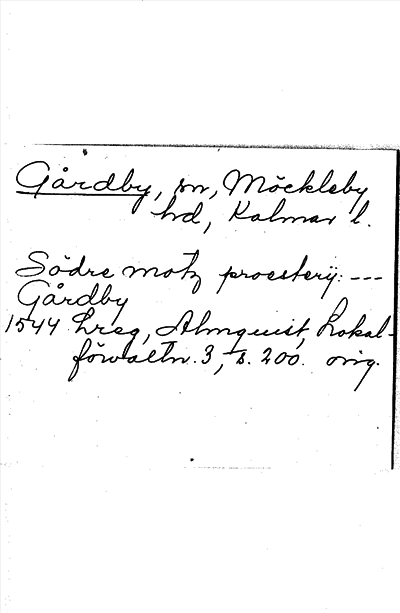 Gårdby, sn, Möckleby
hd, Kalmar l.
Södre motz proesterij: ---
Gårdby
1544 Lreg, Almquist, Lokal-
förvaltn. 3, s. 200. orig.